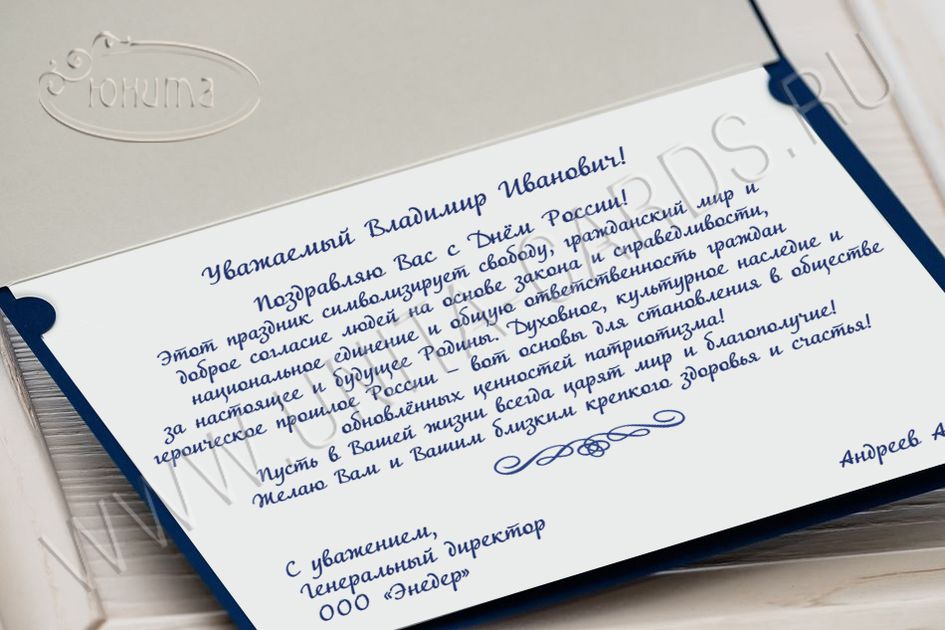 Юнита
Уважаемый Владимир Иванович!
Поздравляю Вас с Днём России!
Этот праздник символизирует свободу, гражданский мир и
доброе согласие людей на основе закона и справедливости,
национальное единение и общую ответственность граждан
за настоящее и будущее Родины. Духовное, культурное наследие и
героическое прошлое России – вот основы для становления в обществе
обновлённых ценностей патриотизма!
Пусть в Вашей жизни всегда царят мир и благополучие!
Желаю Вам и Вашим близким крепкого здоровья и счастья!
С уважением,
Генеральный директор
ООО «Энедер»
Андреев А
WWW.UNITA-CARDS.RU